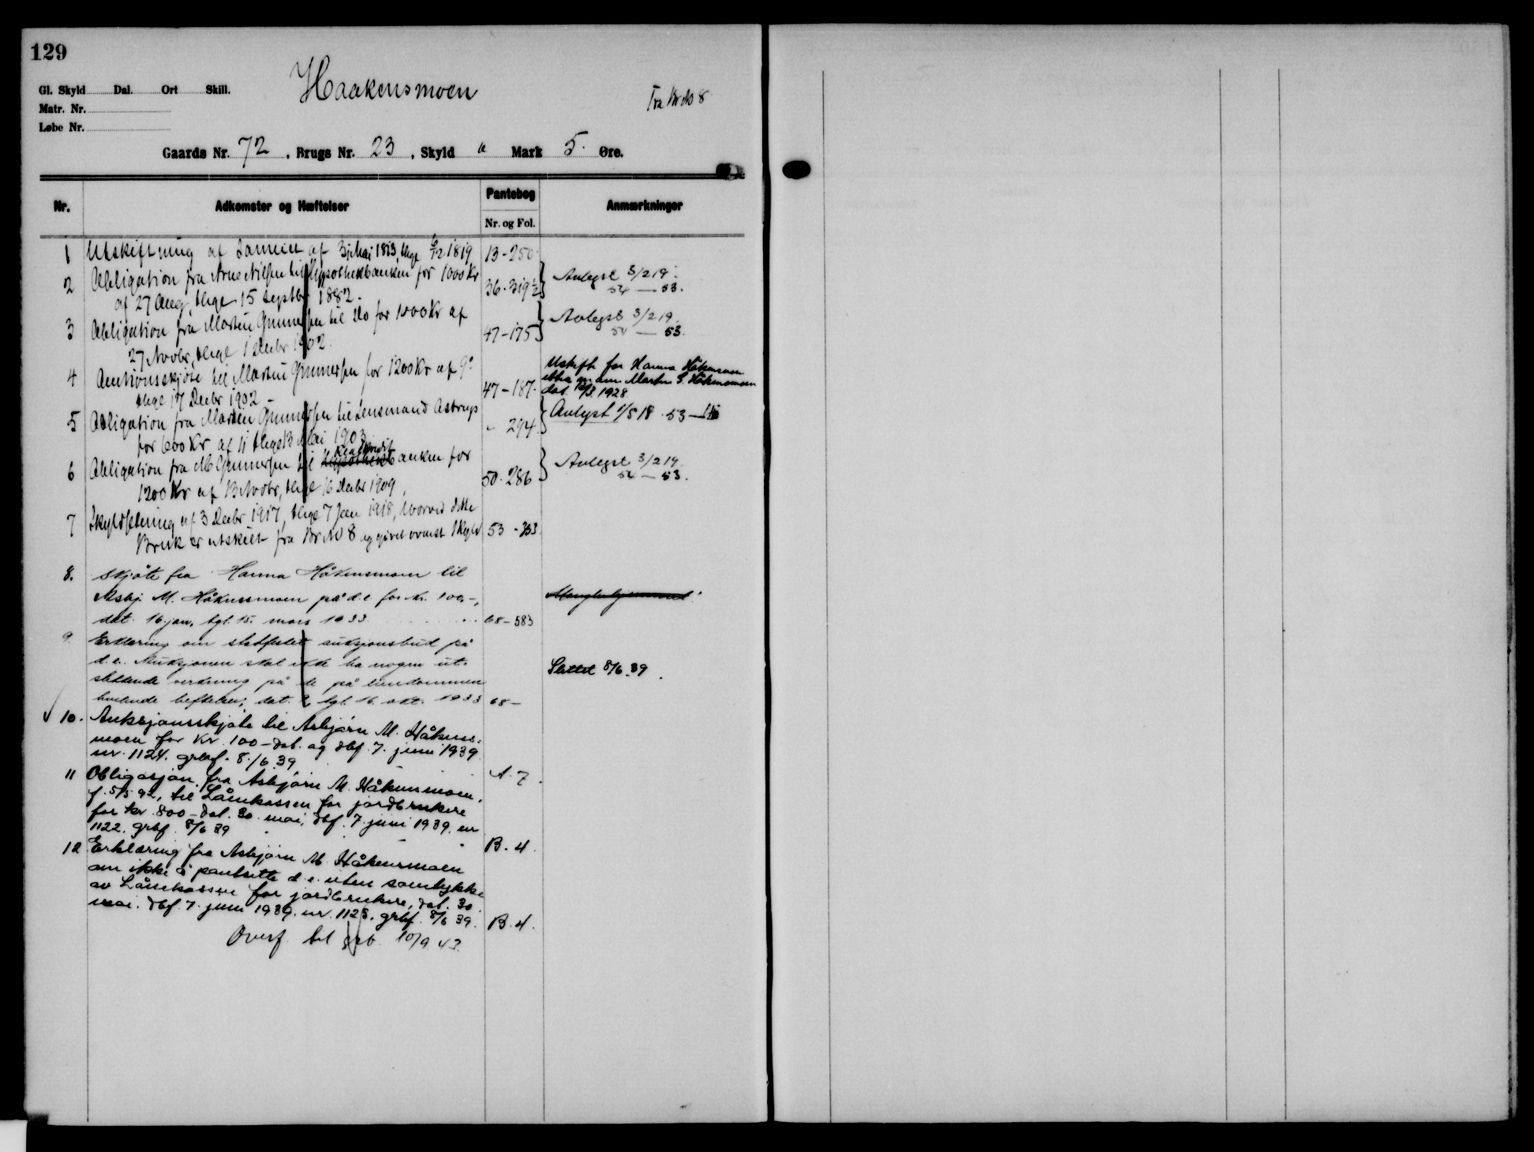 129
Gl. Skyld Dal. Ort Skill.
Haakensmoen
Fra Br No 8
Matr. Nr.
Løbe Nr.
Gaards Nr. 72, Brugs Nr. 23, Skyld " Mark 5 Øre.
Nr. Adkomster og Hæftelser Pantebog Nr. og Fol. Anmærkninger
1 Utskiftning af af 3 Mai 1813, thge 1819 13-250
2 Obligation fra Arne Nilsen til Hypothekbanken for 1000 Kr
af 27 Aug, thge 15 Septbr 1882. 36-319½ Avlyst 3/2 19.
54 — 53.
3 Obligation fra Morten Gunnersen til Do for 1000 Kr af
27 Novbr, thge 1 Decbr 1902. 47-175 Avlyst 3/2 19.
54 — 53.
4 Auctionsskjøte til Morten Gunnersen for 1200 Kr af 9
thge 17 Decbr 1902 - 47-187. Uskift for Hanna Håkensmoen
etter mann Morten G. Håkensmoen
dat. 1928
5 Obligation fra Morten Gunnersen til Lensmand Astrup
for 600 Kr af 11 thge 13 Mai 1903 " 294 Avlyst 1/5 18. 53 —
6 Obligation fra M Gunnersen til Hypothekbanken for
1200 Kr af Novbr, thge 16 Decbr 1909, 50-286 Avlyst 3/2 19.
54 — 53.
7 Skyldseling af 3 Decbr 1917, thge 7 Jan 1918, hvorved dette
Bruk er utskilt fra Br No 8 og givet ovenst Skyld 53-
8. Skjøte fra Hanna Håkensmoen til
Asbj. M. Håkensmoen på d.e. for kr. 100,-,
dat. 16 jan, tgl. 15. mars 1933 68-583
9. Erklæring om stadfestet auksjonsbud på
d.e. Auksjonen skal ikke ha nogen ut-
slettende virkning på de på eiendommen
heftelser, dat. tgl. 16. okt. 1933 68- Slettet 8/6.39.
10. Auksjonsskjøte til Asbjørn M. Håkens-
moen for kr. 100 - dat. og dbf. 7. juni 1939
nr. 1124. grbf. 8/6 39 A. 7.
11 Obligasjon fra Asbjørn M. Håkensmoen,
f. 5/5 92, til Lånekassen for jordbrukere
for kr. 800 - dat. 30. mai, dbf. 7. juni 1939. nr
1122. grbf. 8/6 39 B. 4.
12 Erklæring fra Asbjørn M. Håkensmoen
om ikke å pantsette d.e. uten samtykke
av Lånekassen for jordbrukere, dat. 30.
mai. dbf. 7. juni 1939. nr. 1123. grbf. 8/6 39. B. 4.
Overf. til grb. 10/9 43.